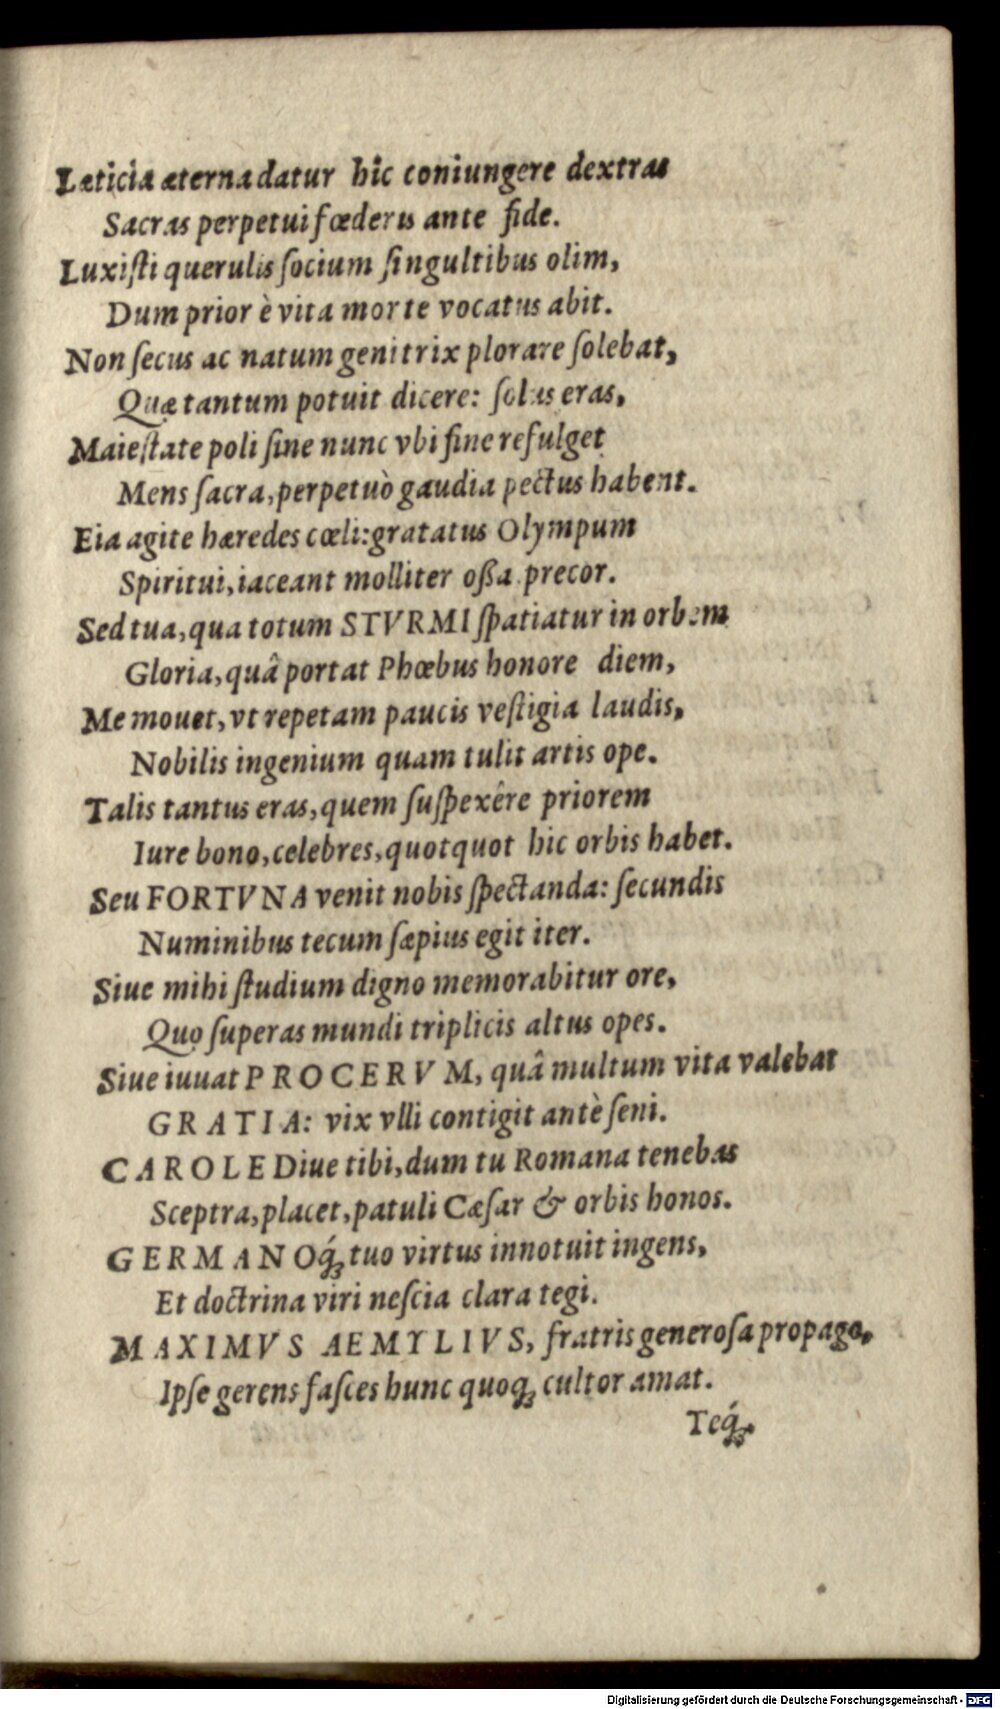 Læticia æterna datur hîc coniungere dextras
Sacras perpetui fœderis ante fide.
Luxiſti querulis ſocium ſingultibus olim,
Dum prior è vita morte vocatus abit.
Non ſecus ac natum genitrix plorare ſolebat,
Quæ tantum potuit dicere: ſolus eras,
Maieſtate poli ſine nunc vbi fine refulget
Mens ſacra, perpetuò gaudia pectus habent.
Eia agite hæredes cœli: gratatus Olympum
Spiritui, iaceant molliter oßa precor.
Sed tua, qua totum STVRMI ſpatiatur in orbem
Gloria, quâ portat Phœbus honore diem,
Me mouet, vt repetam paucis veſtigia laudis,
Nobilis ingenium quam tulit artis ope.
Talis tantus eras, quem ſuſpexêre priorem
Iure bono, celebres, quotquot hic orbis habet.
Seu FORTVNA venit nobis ſpectanda: ſecundis
Numinibus tecum ſæpius egit iter.
Siue mihi ſtudium digno memorabitur ore,
Quo ſuperas mundi triplicis altus opes.
Siue iuuat PROCERVM, quâ multum vita valebat
GRATIA: vix vlli contigit antè ſeni.
CAROLE Diue tibi, dum tu Romana tenebas
Sceptra, placet, patuli Cæſar & orbis honos.
GERMANOq́; tuo virtus innotuit ingens,
Et doctrina viri neſcia clara tegi.
MAXIMVS AEMYLIVS, fratris generoſa propago,
Ipſe gerens faſces hunc quoq; cultor amat.
Teq́;
Digitalisierung gefördert durch die Deutsche Forschungsgemeinschaft - DFG